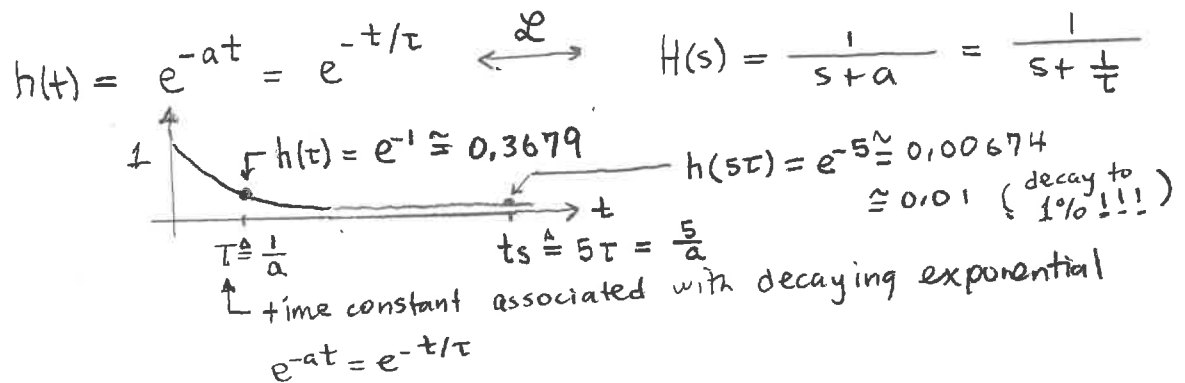 h(t) = e^{-at} = e^{-t/τ} ⟷ ℒ H(s) = 1/(s+a) = 1/(s+1/τ)
1 h(τ) = e^{-1} ≅ 0,3679 h(5τ) = e^{-5} ≅ 0,00674
≅ 0,01 (decay to 1%!!!)
t
τ ≜ 1/a ts ≜ 5τ = 5/a
time constant associated with decaying exponential
e^{-at} = e^{-t/τ}